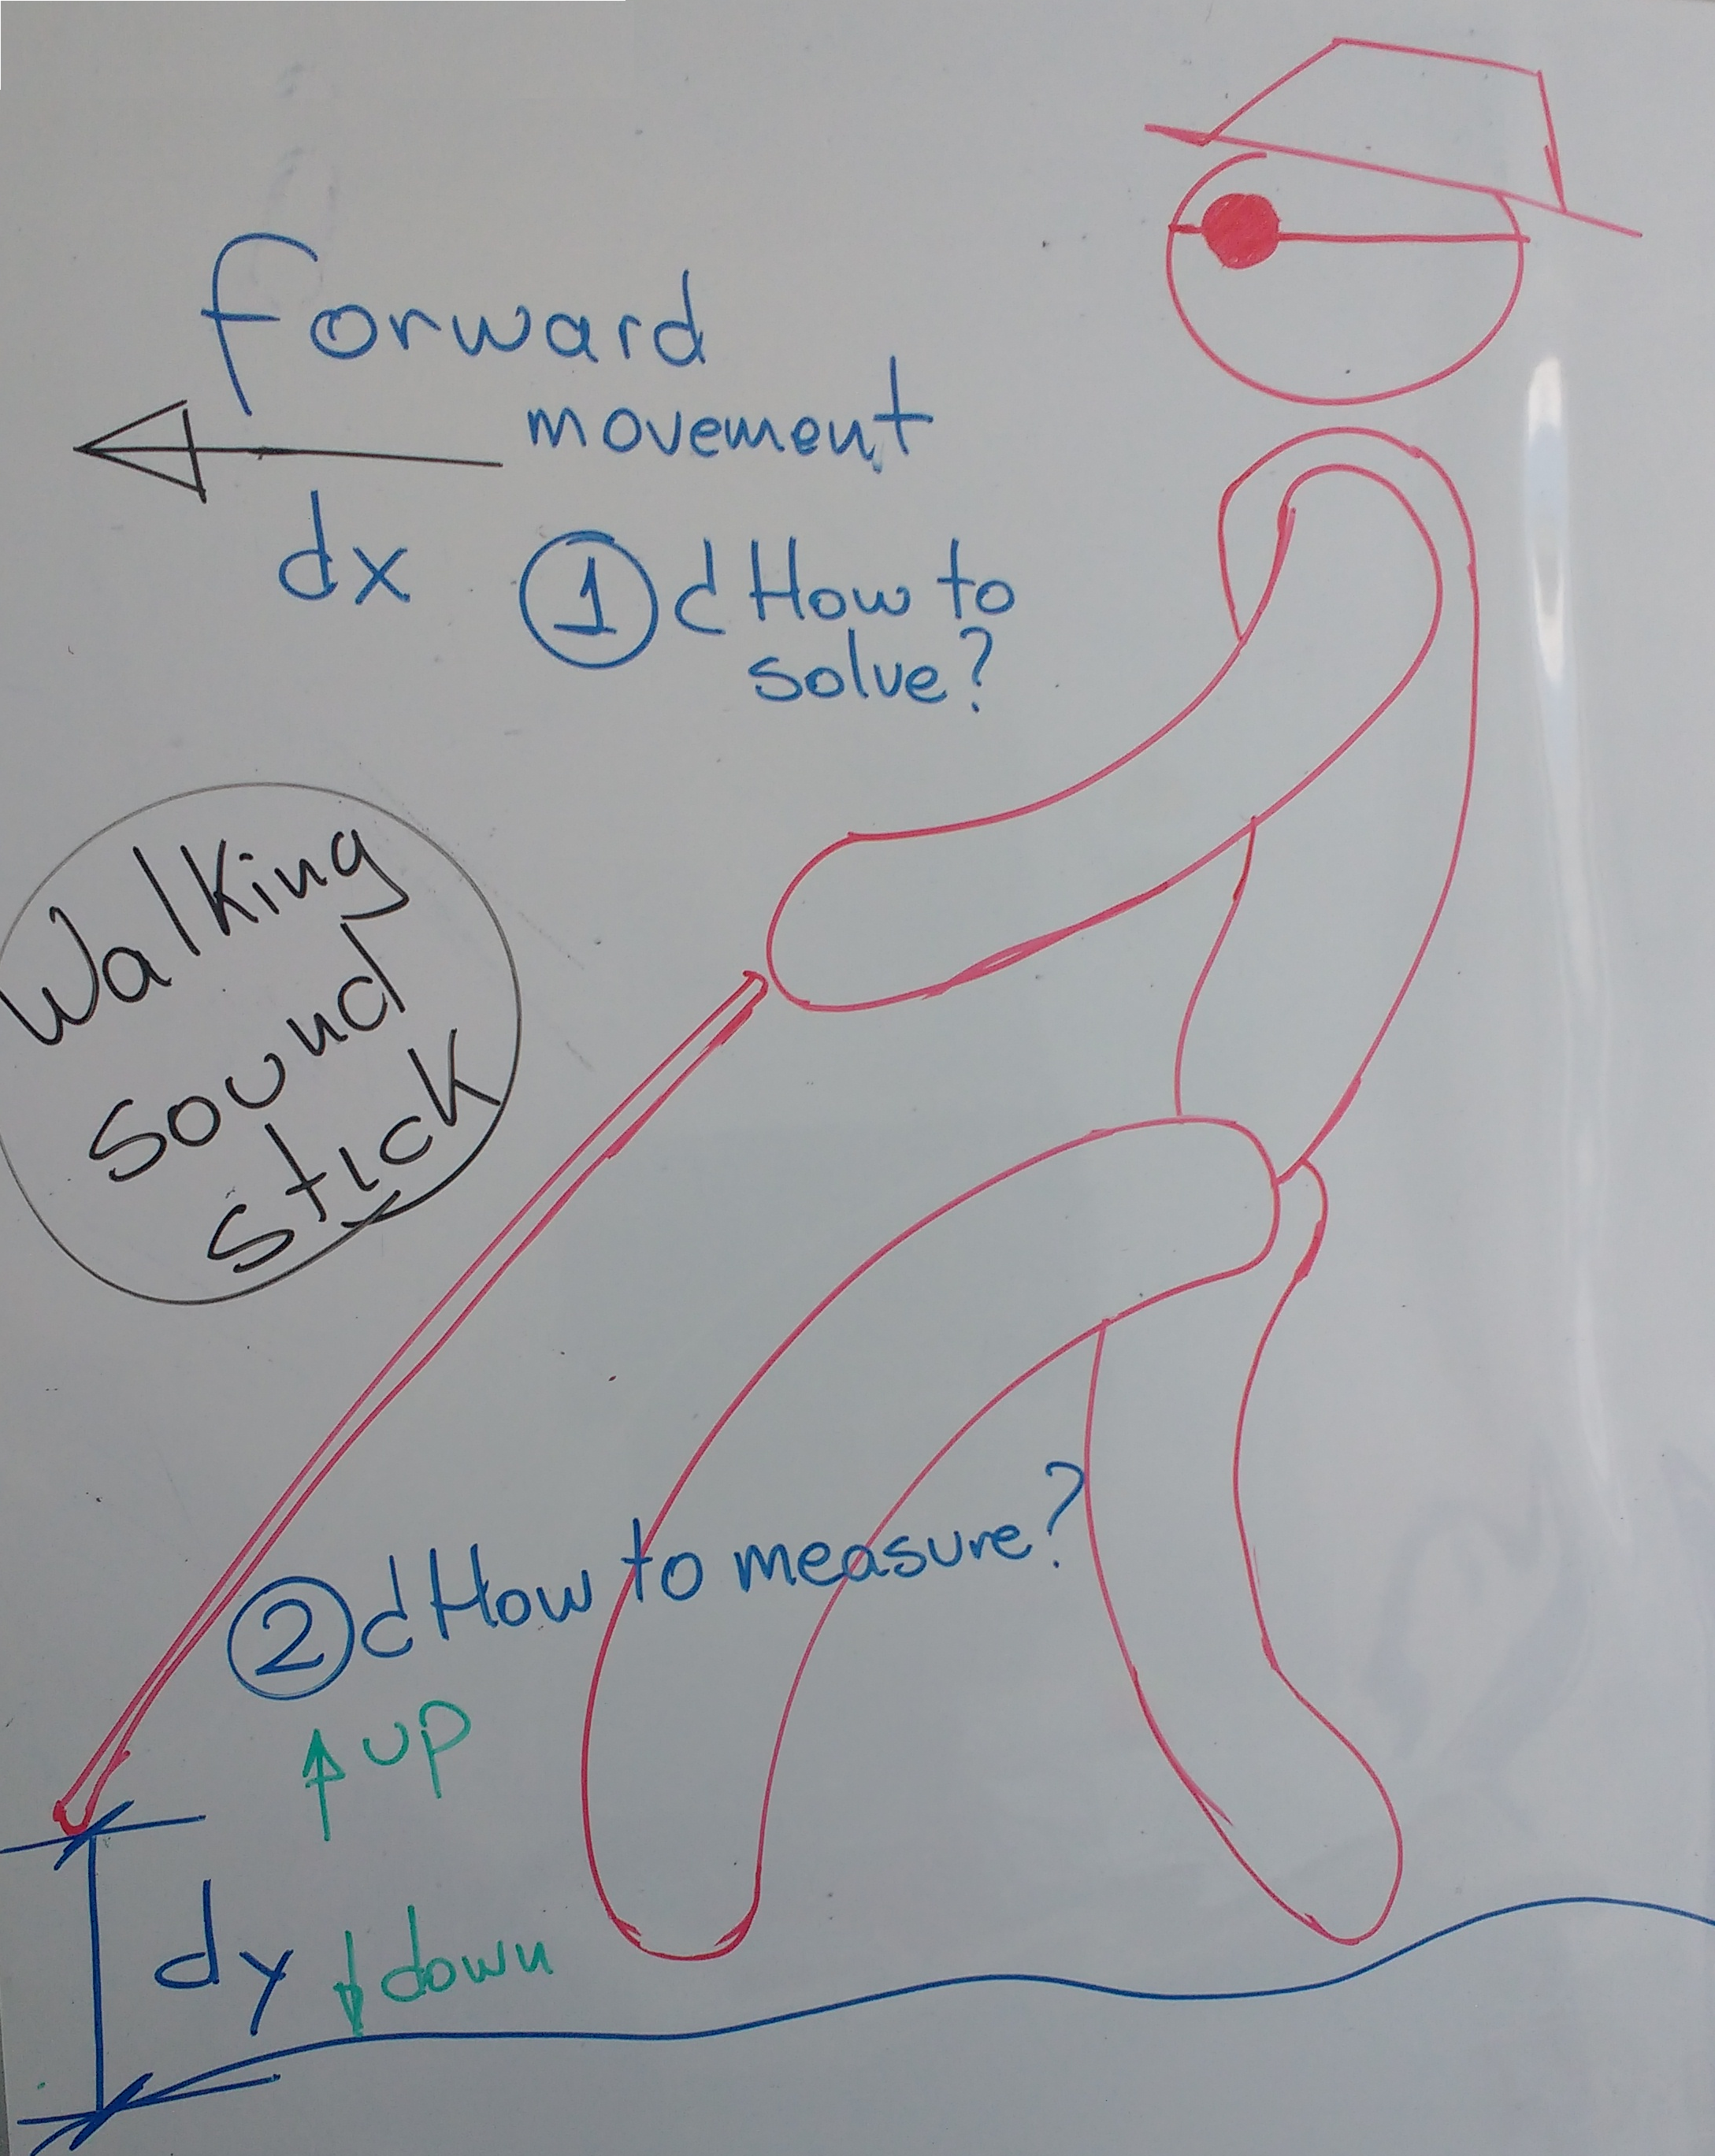 forward
movement
dx
1 ¿How to
solve?
Walking
sound
stick
2 ¿How to measure?
up
dy
down